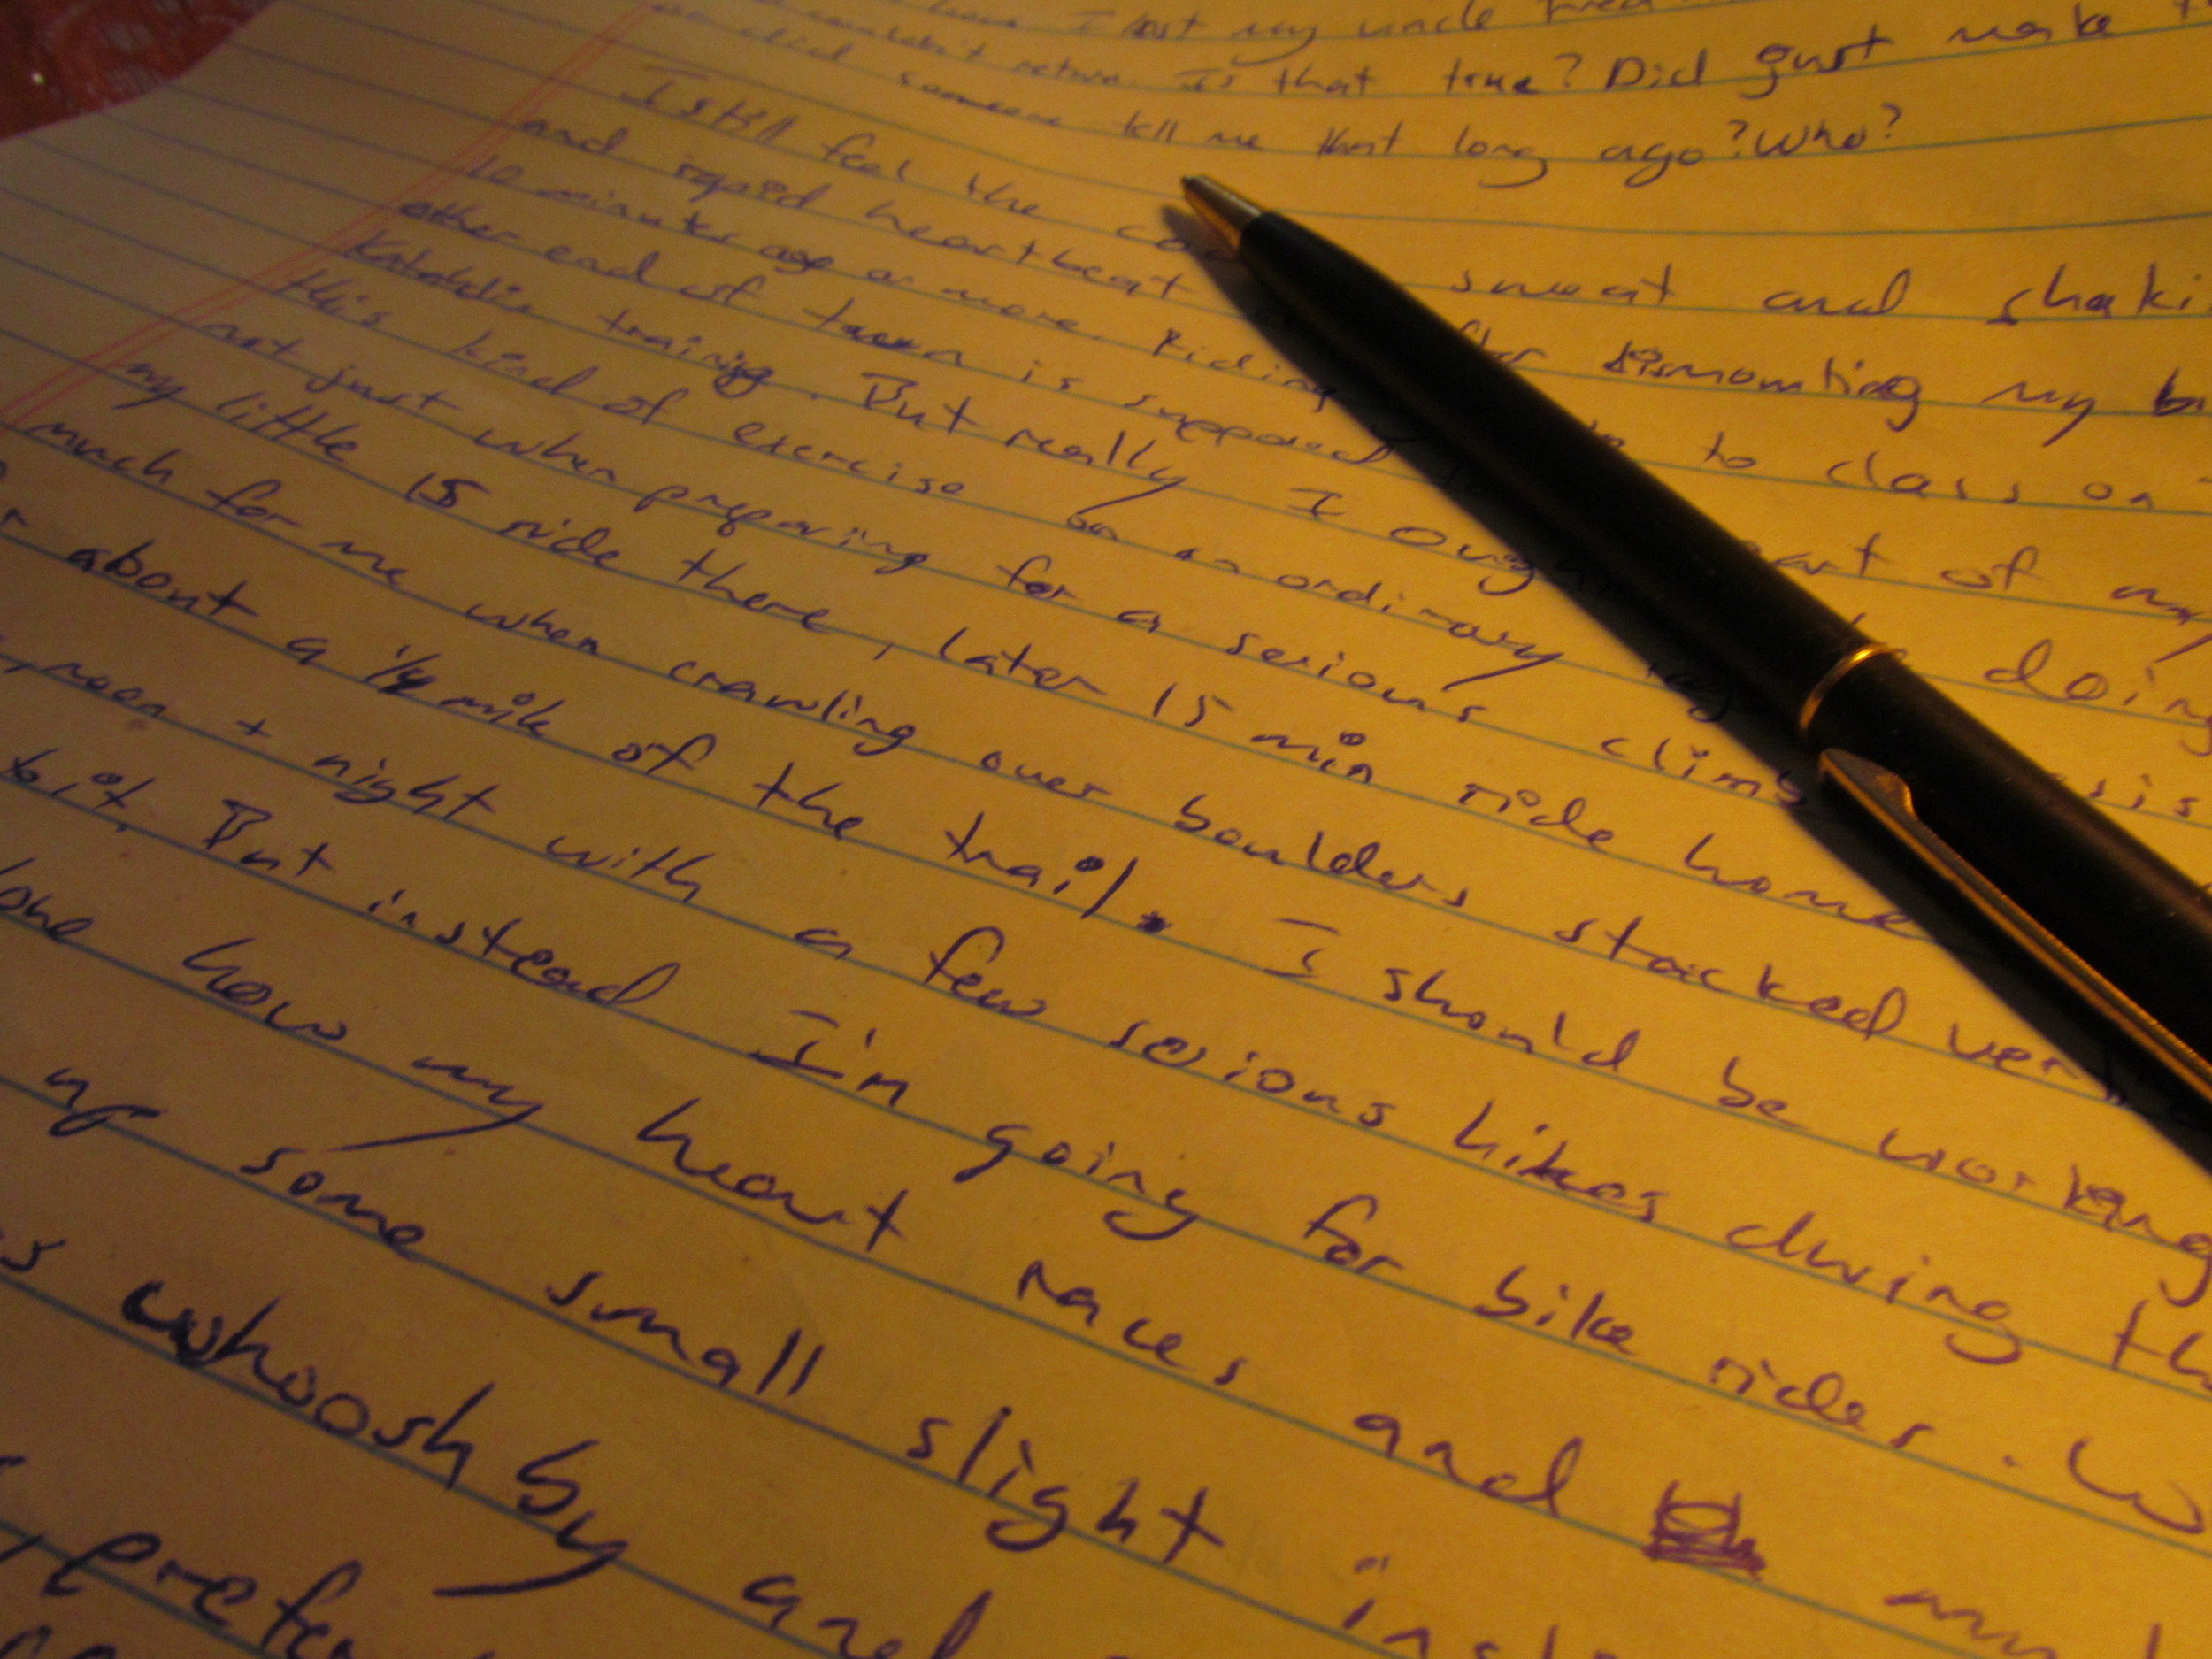 I lost my uncle
return. Is that true? Did just make
did someone tell me that long ago? Who?
I still feel the sweat and shaki
and rapid heartbeat dismounting my bi
10 minutes ago or more. Riding to class on
other end of town is supposed part of my
Katahdin training. But really I ough doing
this kind of exercise on an ordinary sis
not just when preparing for a serious climb
my little 15 ride there, later 15 min ride home
much for me when crawling over boulders stacked ver
about a 1/4 mile of the trail. I should be working
noon + night with a few serious hikes during th
bit. But instead I'm going for bike rides. W
how my heart races and my
up some small slight in
whoosh by and